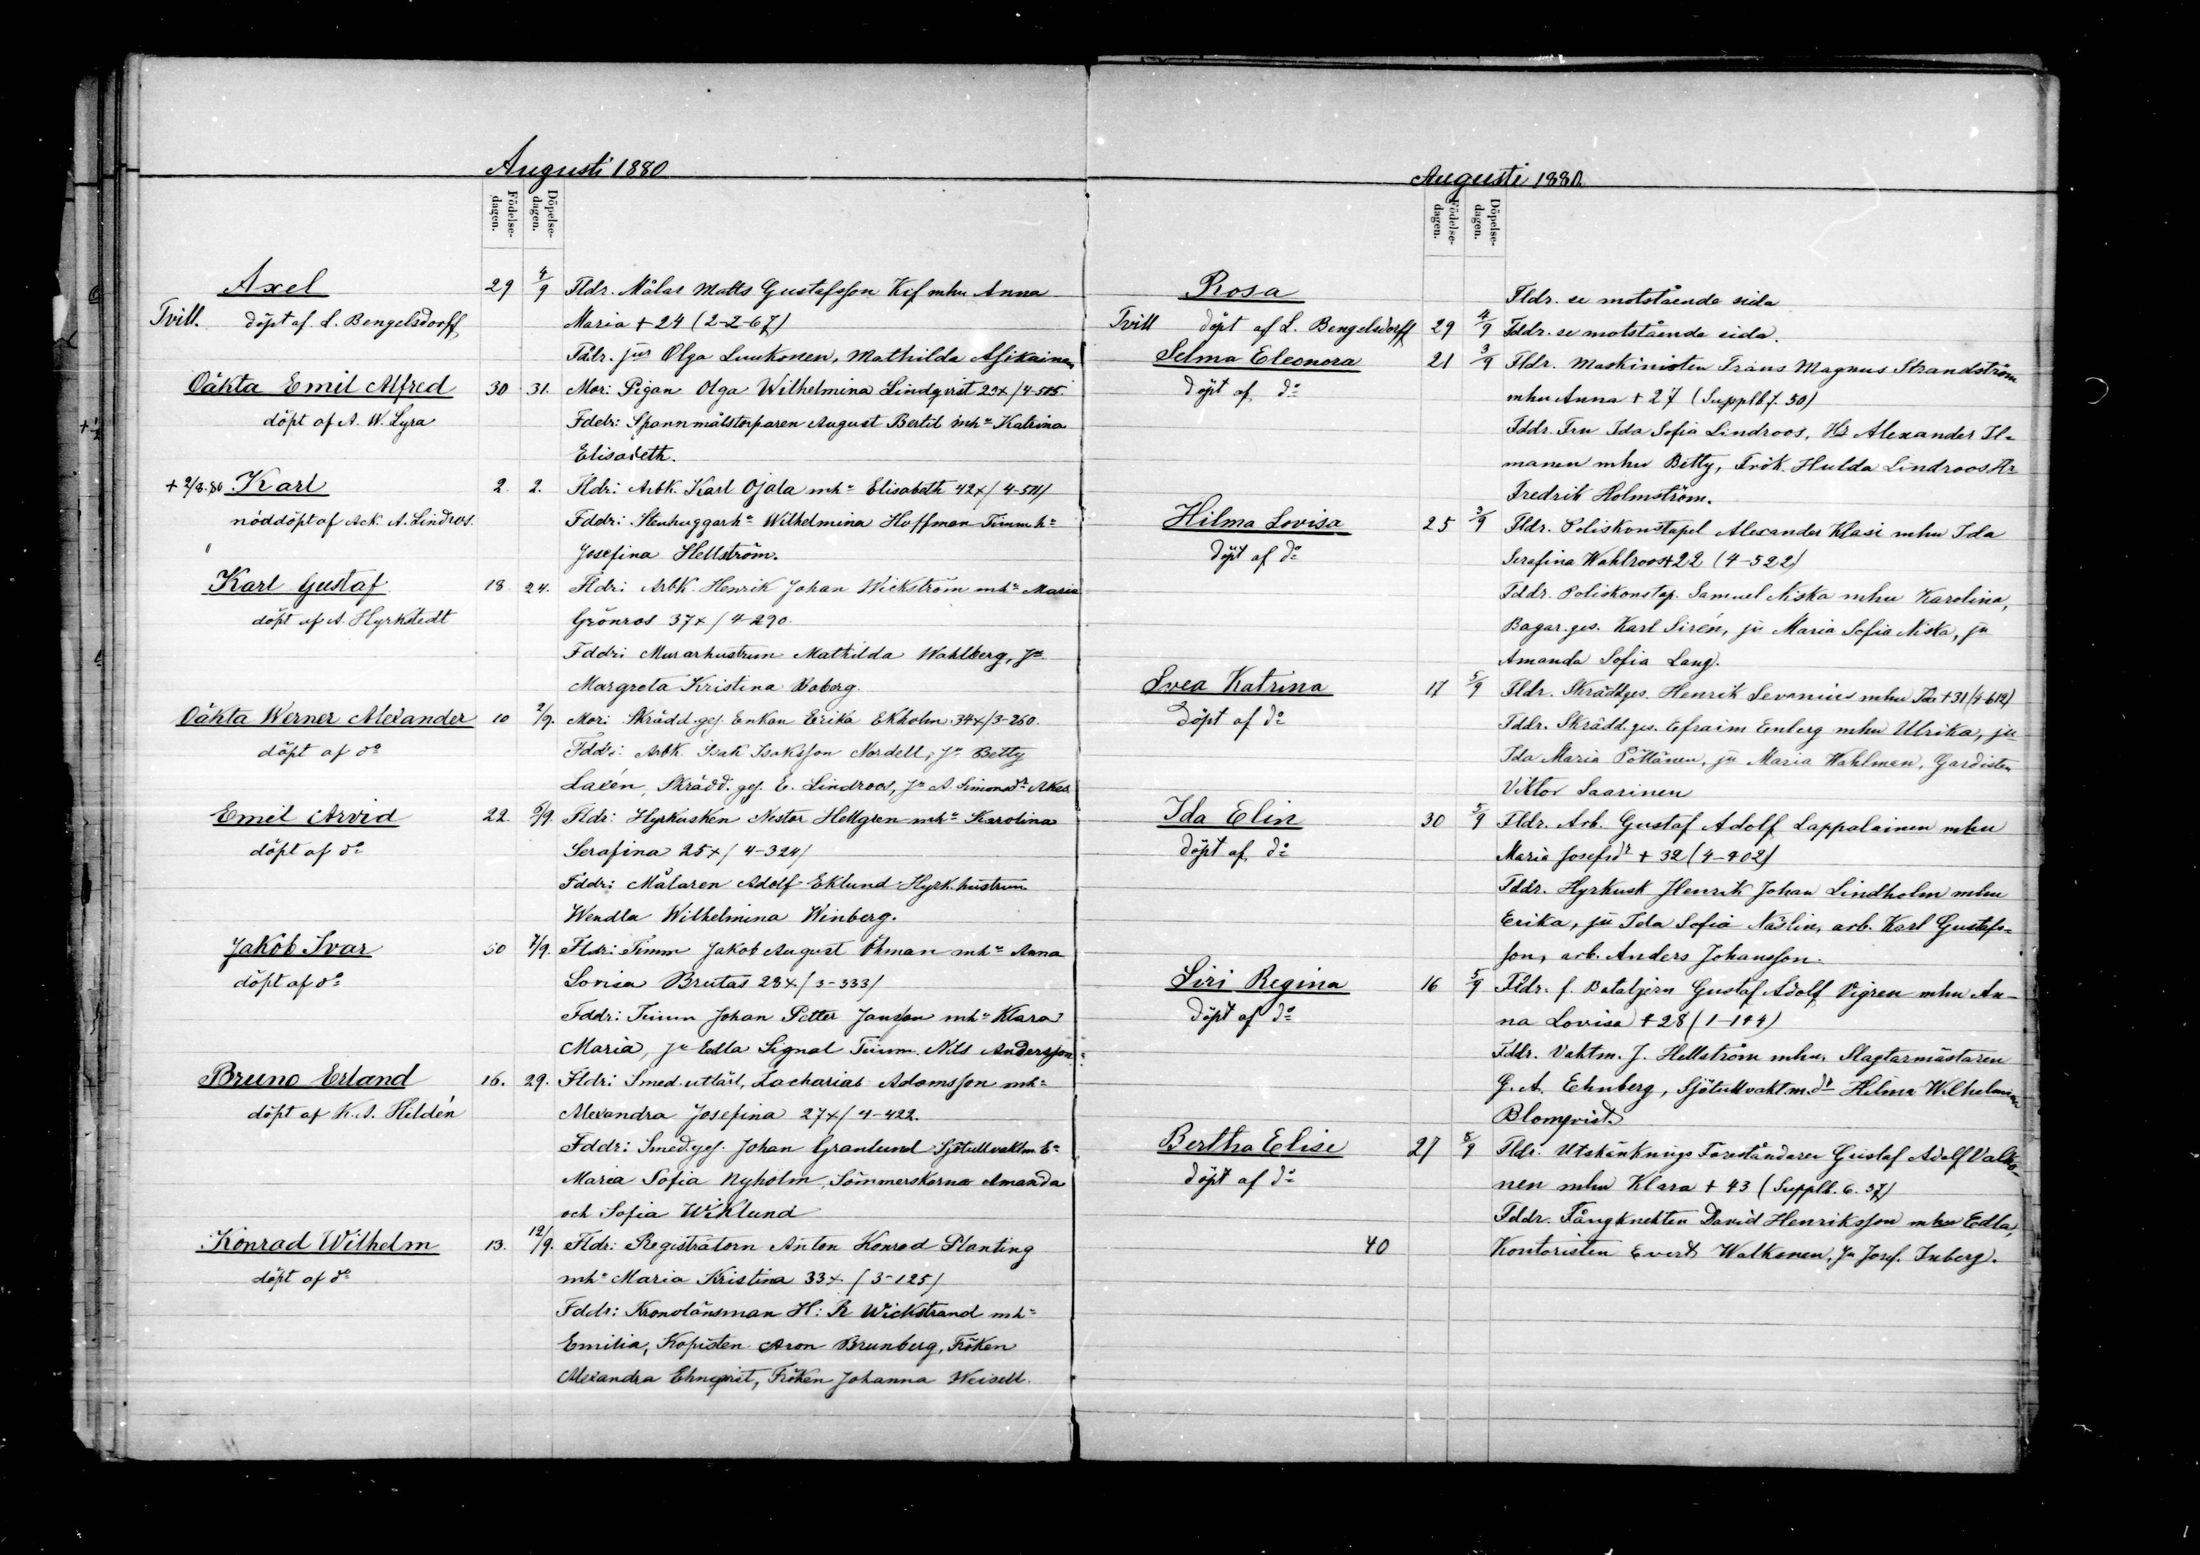 Augusti 1880
Födelse-
dagen.
Döpelse-
dagen.
Axel 29 4/9 Fldr. Målar Matts Gustafsson Kif mhu Anna
Tvill. döpt af L. Bengelsdorff Maria + 24 (2-2-67)
Fddr. jus Olga Luukonen, Mathilda Asikainen
Oäkta Emil Alfred 30 31. Mor: Pigan Olga Wilhelmina Lindqvist 29x/4-505.
döpt af A. W. Lyra Fddr: Spannmålstorparen August Bertil mhu Katrina
Elisabeth.
+ 2/8.80 Karl 2. 2. Fldr: Arbk. Karl Ojala mhu Elisabeth 42x/4-511/
nöddöpt af Ack. A. Lindros. Fddr: Stenhuggarhu Wilhelmina Hoffman Timmhu
Josefina Hellström.
Karl Gustaf 18. 24. Fldr: Arbk. Henrik Johan Wickström mhu Maria
döpt af A. Hyrkstedt Grönros 37x/4-290.
Fddr: Murarhustrun Mathilda Wahlberg, Ju
Margreta Kristina Boberg.
Oäkta Werner Alexander 10 2/9. Mor: Skrädd.ges. Enkan Erika Ekholm 34x/3-260.
döpt af do Fddr: Arbk. Isak Isaksson Nordell, Ju Betty
Laxén, Skrädd. ges. E. Lindroos, Ju A. Simonsdr
Emil Arvid 22. 5/9. Fldr: Hyrkusken Nestor Hellgren mhu Karolina
döpt af do Serafina 25x/4-324/
Fddr: Målaren Adolf Eklund Hyrk.hustrun
Wendla Wilhelmina Winberg.
Jakob Ivar 30 7/9. Fldr: Timm Jakob August Öhman mhu Anna
döpt af do Lovisa Brutas 28x/3-333/
Fddr: Timm Johan Petter Jansson mhu Klara
Maria, Ju Edla Signal Timm. Nils Andersson
Bruno Erland 16. 29. Fldr: Smed.utlärl. Zacharias Adamsson mhu
döpt af K. A. Hildén Alexandra Josefina 27x/4-422.
Fddr: Smed.ges. Johan Granlund Sjötullvaktm. Eu
Maria Sofia Nyholm, Sömmerskorna Amanda
och Sofia Wiklund
Konrad Wilhelm 13. 12/9. Fldr: Registratorn Anton Konrad Planting
döpt af do mhu Maria Kristina 33x/3-125/
Fddr: Kronolänsman H: R Wickstrand mhu
Emilia, Kopisten Aron Brunberg, Fröken
Alexandra Ehnqvist, Fröken Johanna Weisell.
Augusti 1880.
Födelse-
dagen.
Döpelse-
dagen.
Rosa Fldr. se motstående sida
Tvill döpt af L. Bengelsdorff 29 4/9 Fddr. se motstående sida.
Selma Eleonora 21 3/9 Fldr. Maskinisten Frans Magnus Strandström
döpt af do mhu Anna + 27 (Supplb f. 50)
Fddr. Fru Ida Sofia Lindroos, Hr Alexander Il-
manen mhu Betty, Frök. Hulda Lindroos Hr
Fredrik Holmström.
Hilma Lovisa 25 3/9 Fldr. Poliskonstapel Alexander Klasi mhu Ida
döpt af do Serafina Wahlroos + 22 (4-522)
Fddr. Poliskonstap. Samuel Niska mhu Karolina,
Bagar.ges. Karl Sirén, ju Maria Sofia Niska, ju
Amanda Sofia Lang.
Svea Katrina 17 5/9 Fldr. Skräddges. Henrik Levonius mhu Ida + 31 (4-612)
döpt af do Fddr. Skrädd.ges. Efraim Enberg mhu Ulrika, ju
Ida Maria Pöttänen, ju Maria Wahlman, Gardisten
Viktor Saarinen
Ida Elin 30 5/9 Fldr. Arb. Gustaf Adolf Lappalainen mhu
döpt af do Maria Josefsdr + 32 (4-402)
Fddr. Hyrkusk Henrik Johan Lindholm mhu
Erika, ju Ida Sofia Näslin, arb. Karl Gustafs-
son, arb. Anders Johansson.
Siri Regina 16 5/9 Fldr. f. Bataljern Gustaf Adolf Vigren mhu An-
döpt af do na Lovisa + 28 (1-144)
Fddr. Vaktm. J. Hellström mhu, Slagtarmästaren
G. A. Ehnberg, Sjötullvaktm.dr Hilma Wilhelmina
Blomqvist
Bertha Elise 27 8/9 Fldr. Utskänknings Föreståndaren Gustaf Adolf Valko-
döpt af do nen mhu Klara + 43 (Supplb. 6. 37)
Fddr. Fångknekten David Henriksson mhu Edla,
40 Kontoristen Evert Walkonen, Ju Josef. Inberg.